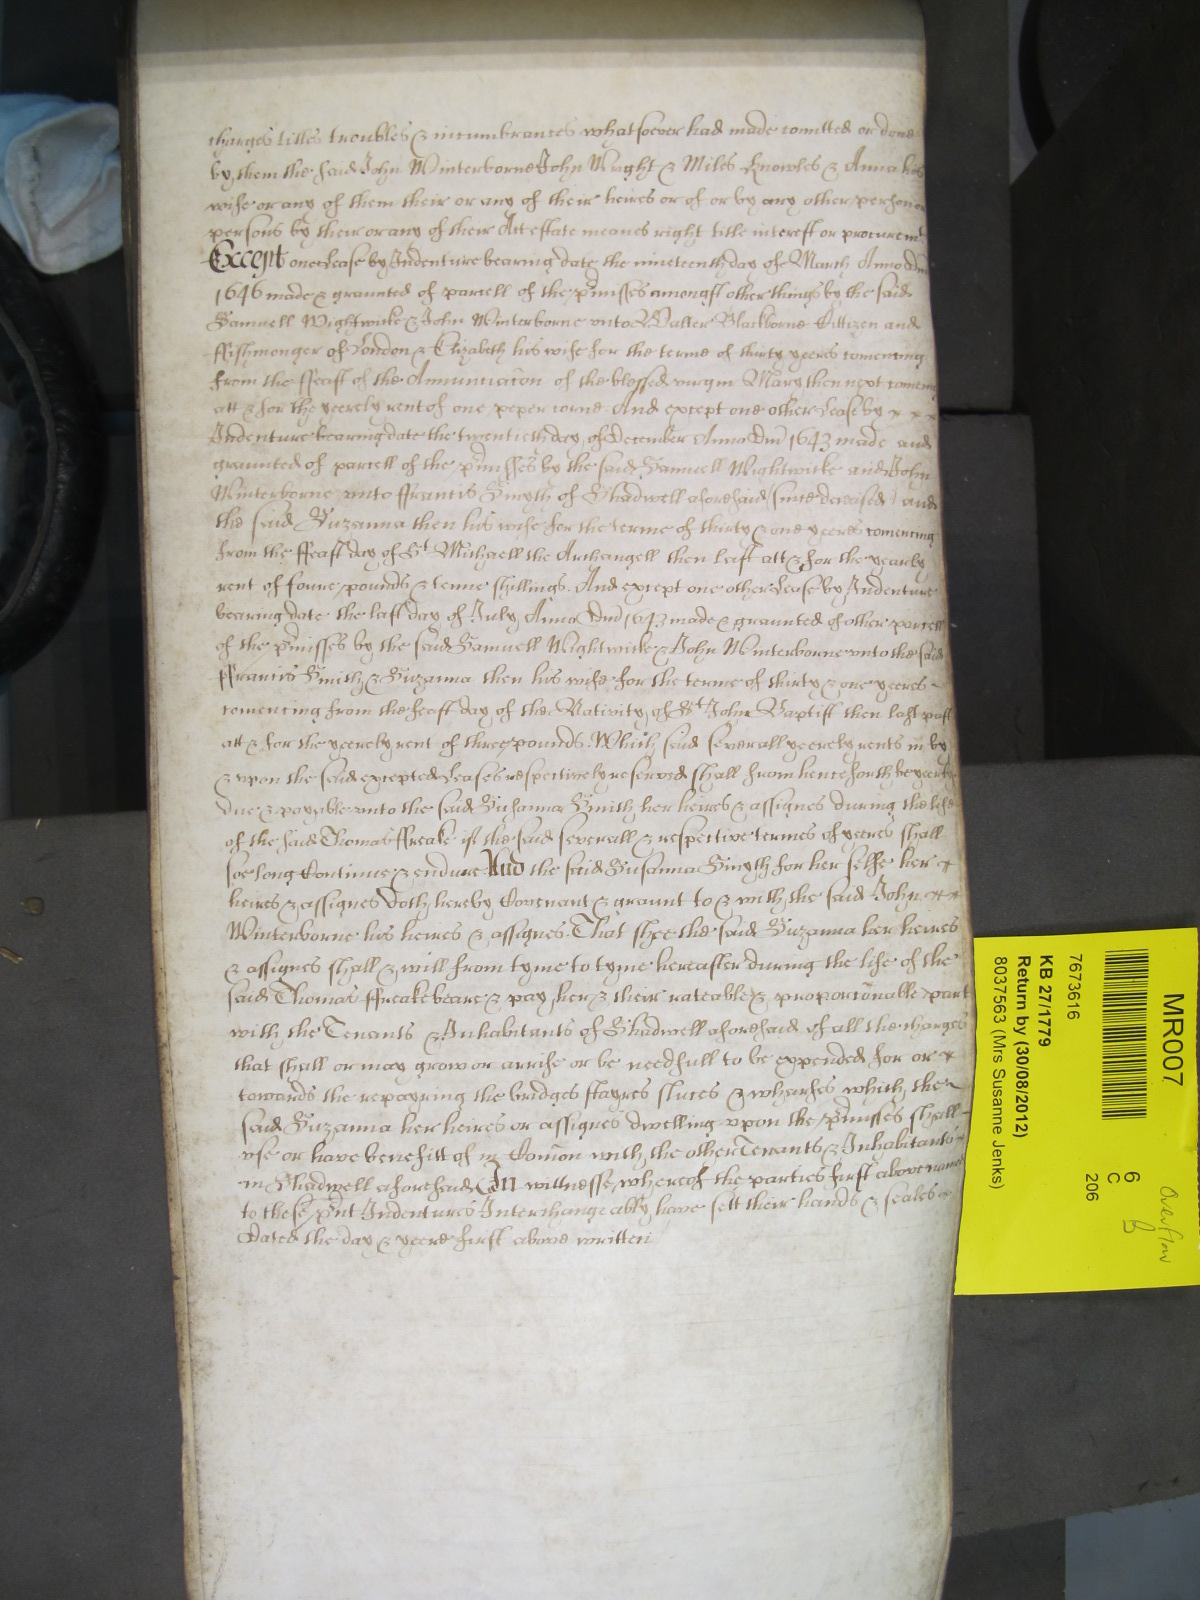 charges titles troubles & incumbrances whatsoever had made comitted or done
by them the said John Winterborne John Wright & Miles Knowles & Anna his
wife or any of them their or any of their heires or of or by any other person or
persons by their or any of their Act estate meanes right title interest or procuremt
Except one Lease by Indenture bearing date the nineteenth day of March Anno Dm̃
1646 made & graunted of parcell of the p̃misses amongst other things by the said
Samuell Wightwicke & John Winterborne unto Walter Blackborne Cittizen and
ffishmonger of London & Elizabeth his wife for the terme of thirty yeeres comencing
from the ffeast of the Annunciac̃on of the blessed virgin Mary then next comeing
att & for the yeerely rent of one peper corne And except one other Lease by x x x
Indenture bearing date the twentieth day of December Anno Dm̃ 1643 made and
graunted of parcell of the p̃misses by the said Samuell Wightwicke and John
Winterborne unto ffrancis Smyth of Shadwell aforesaid (since deceased) and
the said Suzanna then his wife for the terme of thirty & one yeeres comencing
from the ffeast day of St Michaell the Archangell then last att & for the yearly
rent of foure pounds & tenne shillings. And except one other Lease by Indenture
bearing date the last day of July Anno Dm̃ 1643 made & graunted of other parcell
of the p̃misses by the said Samuell Wightwicke & John Winterborne unto the said
ffrancis Smith & Suzanna then his wife for the terme of thirty & one yeeres
comencing from the feast day of the Nativity of St John Baptist then last past
att & for the yeerely rent of three pounds. Which said severall yeerely rents in by
& upon the said excepted Leases respectively reserved shall from henceforth be yeerly
due & payable unto the said Susanna Smith her heires & assignes during the life
of the said Thomas ffreake if the said severall & respective termes of yeeres shall
soe long Continue & endure And the said Susanna Smyth for her selfe her x
heires & assignes doth hereby Covenant & graunt to & with the said John x x
Winterborne his heires & assignes That shee the said Suzanna her heires
& assignes shall & will from tyme to tyme hereafter during the life of the
said Thomas ffreake beare & pay her & their rateable & proportc̃onable part
with the Tenants & Inhabitants of Shadwell aforesaid of all the charges
that shall or may grow or arrise or be needfull to be expended for or x
towards the repayring the bridges stayres sluces & wharfes which the
said Suzanna her heires or assignes dwelling upon the p̃misses shall
use or have benefitt of in Com̃on with the other Tenants & Inhabitants
in Shadwell aforesaid In wittnesse whereof the parties first above named
to these p̃nt Indentures Interchangeably have sett their hands & seales
Dated the day & yeere first above written
MR007
6
C
206
7673616
KB 27/1779
Return by (30/08/2012)
8037563 (Mrs Susanne Jenks)
Overflow
B